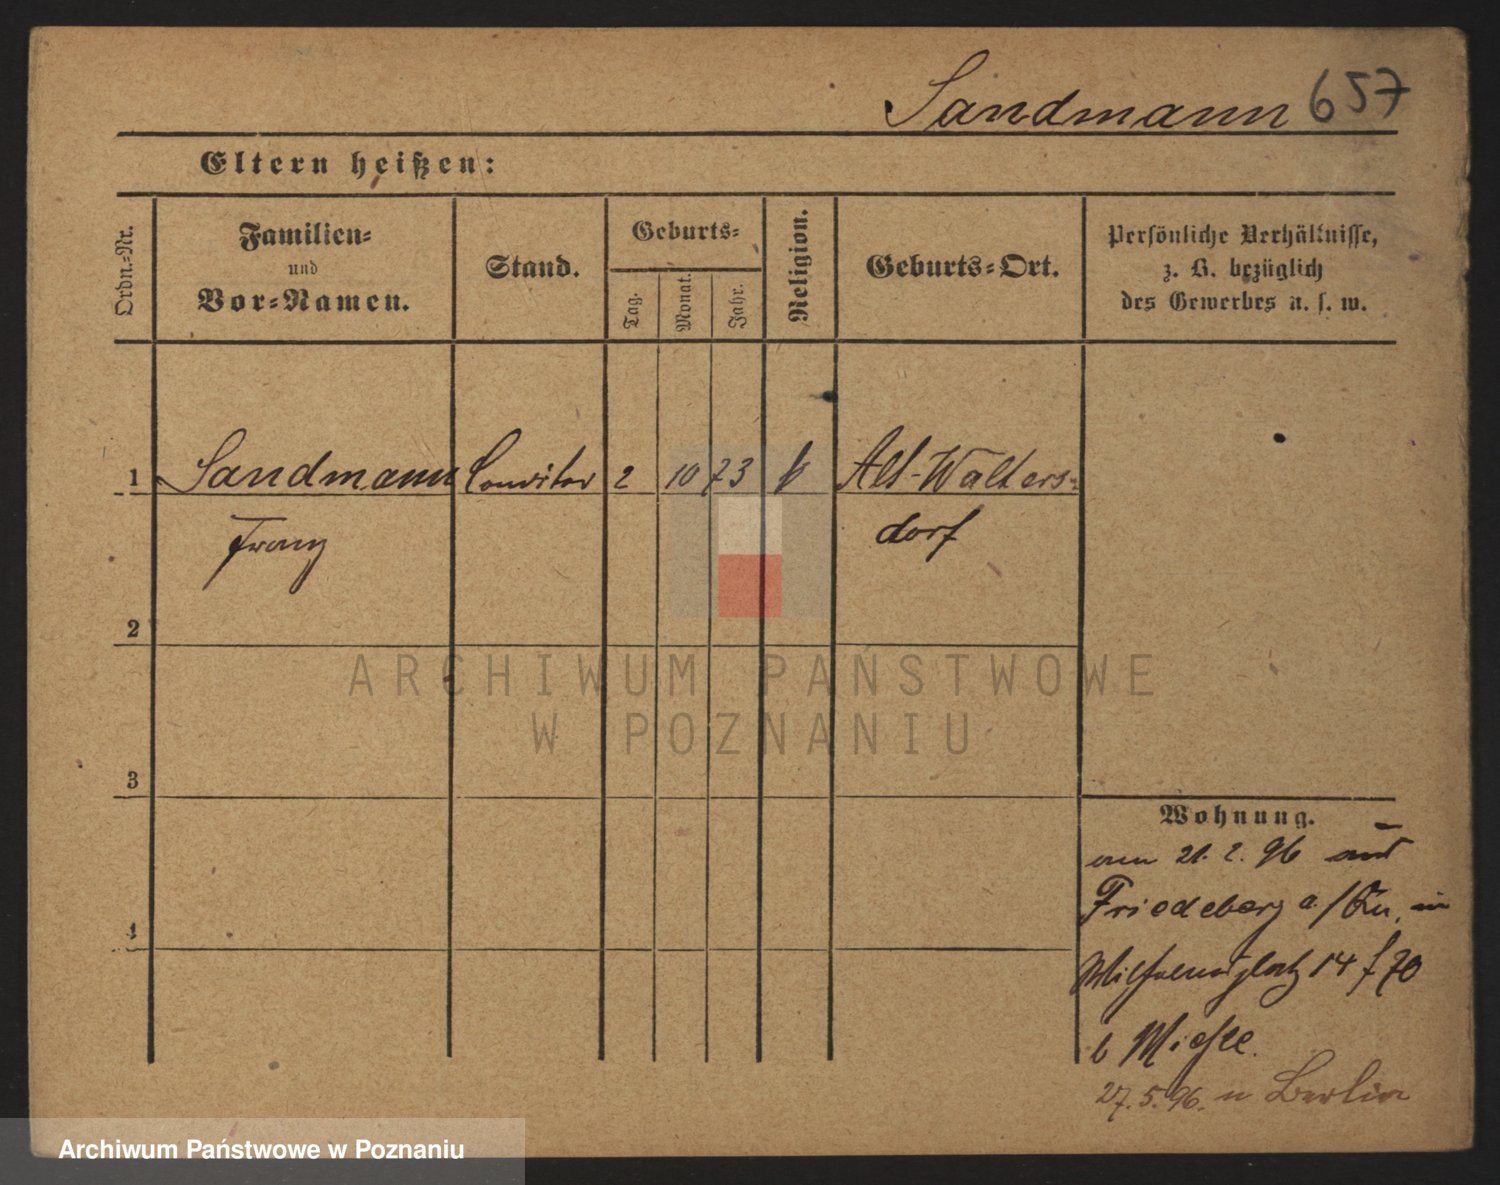 Sandmann 657
Eltern heißen:
Ordn.-Nr.
Familien-
und
Vor-Namen.
Stand.
Geburts-
Tag.
Monat.
Jahr.
Religion.
Geburts-Ort.
Persönliche Verhältnisse,
z. B. bezüglich
des Gewerbes u. s. w.
1 Sandmann Conditor 2 10 73 k Alt-Walters-
Franz dorf
2
3
4
Wohnung.
am 21. 2. 96 aus
Friedeberg a/Qu. in
Wilhelmsplatz 14 f 70
b Miehle.
27.5.96. n Berlin
ARCHIWUM PAŃSTWOWE
W POZNANIU
Archiwum Państwowe w Poznaniu